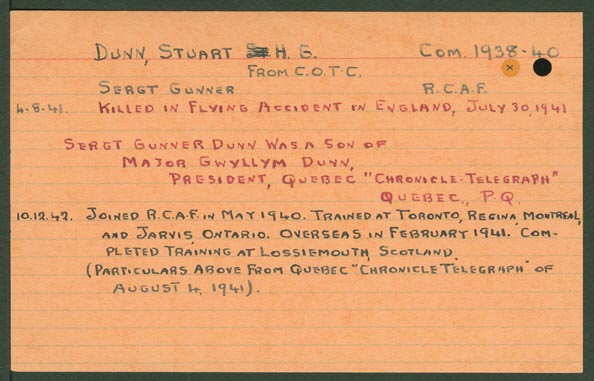 DUNN, STUART H. G. COM. 1938-40
FROM C.O.T.C.
SERGT GUNNER R.C.A.F.
4.8.41. KILLED IN FLYING ACCIDENT IN ENGLAND, JULY 30, 1941
SERGT GUNNER DUNN WAS A SON OF
MAJOR GWYLLYM DUNN,
PRESIDENT, QUEBEC "CHRONICLE-TELEGRAPH"
QUEBEC., P.Q.
10.12.42. JOINED R.C.A.F. IN MAY 1940. TRAINED AT TORONTO, REGINA, MONTREAL,
AND JARVIS, ONTARIO. OVERSEAS IN FEBRUARY 1941. COM-
PLETED TRAINING AT LOSSIEMOUTH, SCOTLAND.
(PARTICULARS ABOVE FROM QUEBEC "CHRONICLE TELEGRAPH" OF
AUGUST 4, 1941).